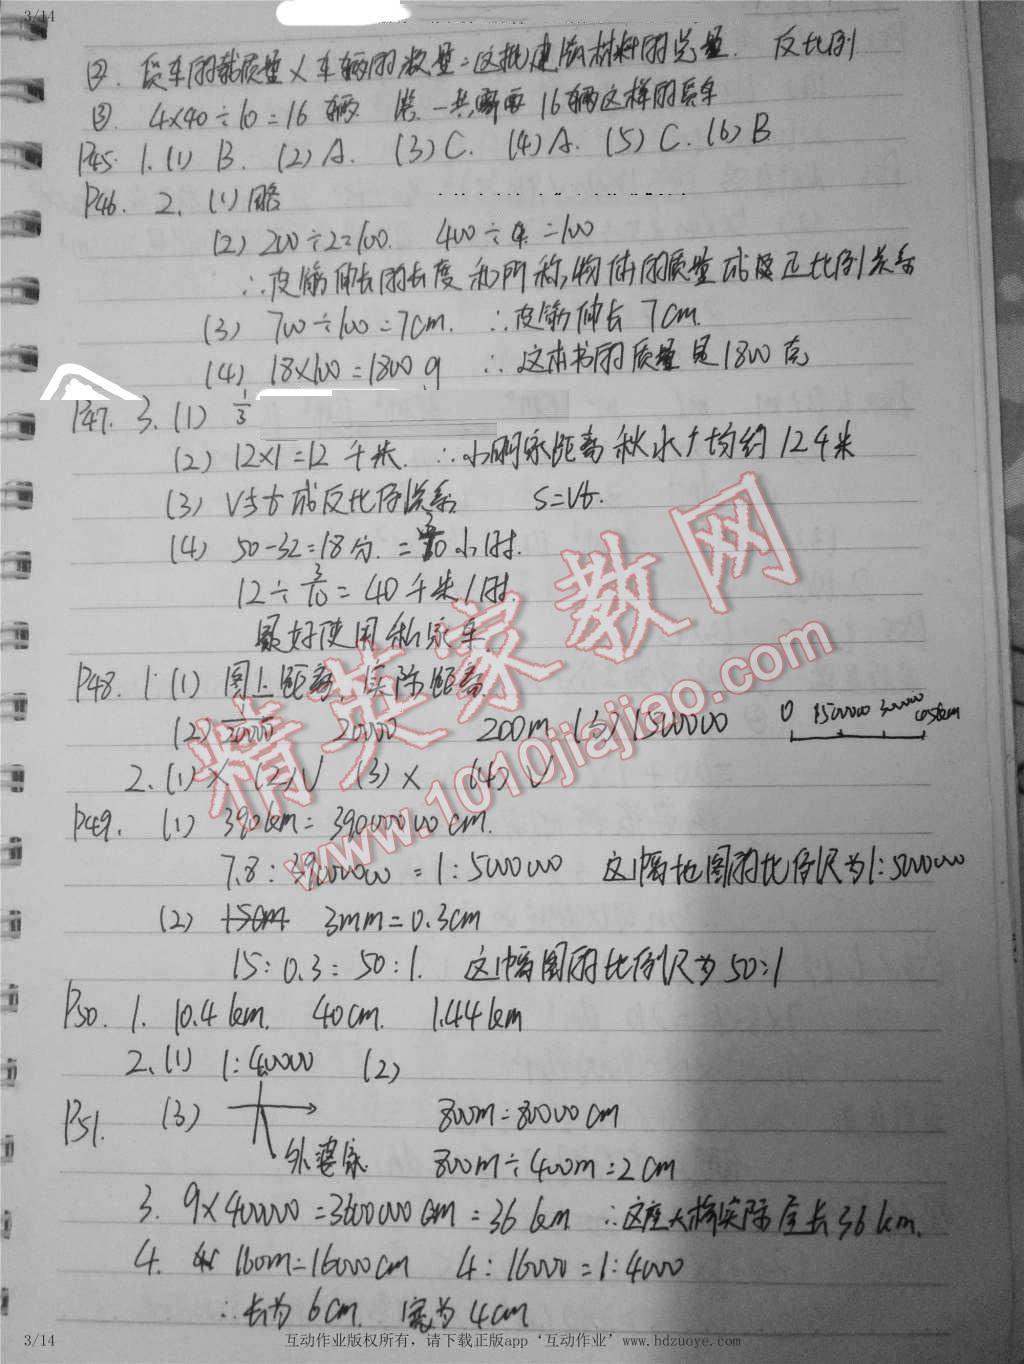 3/14
② 货车的载质量×车辆的数量=这批建筑材料的总量. 反比例
③ 4×40÷10=16 辆 答:一共需要16辆这样的货车
P45. 1.(1) B. (2) A. (3) C. (4) A. (5) C. (6) B
P46. 2. (1) 略
(2) 200÷2=100. 400÷4=100
∴皮筋伸长的长度和所称物体的质量成正比例关系
(3) 700÷100=7cm. ∴皮筋伸长 7cm.
(4) 18×100=1800 g ∴这本书的质量是1800克
P47. 3.(1) 1/3
(2) 12×1=12 千米. ∴小刚家距离秋水广均约 12千米
(3) V与t成反比例关系 S=Vt.
(4) 50-32=18分. = 3/10 小时.
12÷3/10=40千米/时.
最好使用私家车.
P48. 1.(1) 图上距离 实际距离
(2) 1/20000 20000 200m (3) 1500000 0 1500000 3000000
2.(1)× (2)√ (3)× (4)√
P49. (1) 390km=39000000cm.
7.8:39000000=1:5000000 这幅地图的比例尺为1:5000000
(2) 3mm=0.3cm
15:0.3=50:1. 这幅图的比例尺为50:1
P50. 1. 10.4km. 40cm. 1.44km
2.(1) 1:40000 (2)
P51. (3) 800m=80000cm
外婆家 800m÷400m=2cm
3. 9×400000=3600000cm=36km ∴这座大桥实际全长36km.
4. 160m=16000cm 4:16000=1:4000
∴长为6cm. 宽为4cm
精英家教网
www.1010jiajiao.com
3/14 互动作业版权所有，请下载正版app‘互动作业’www.hdzuoye.com